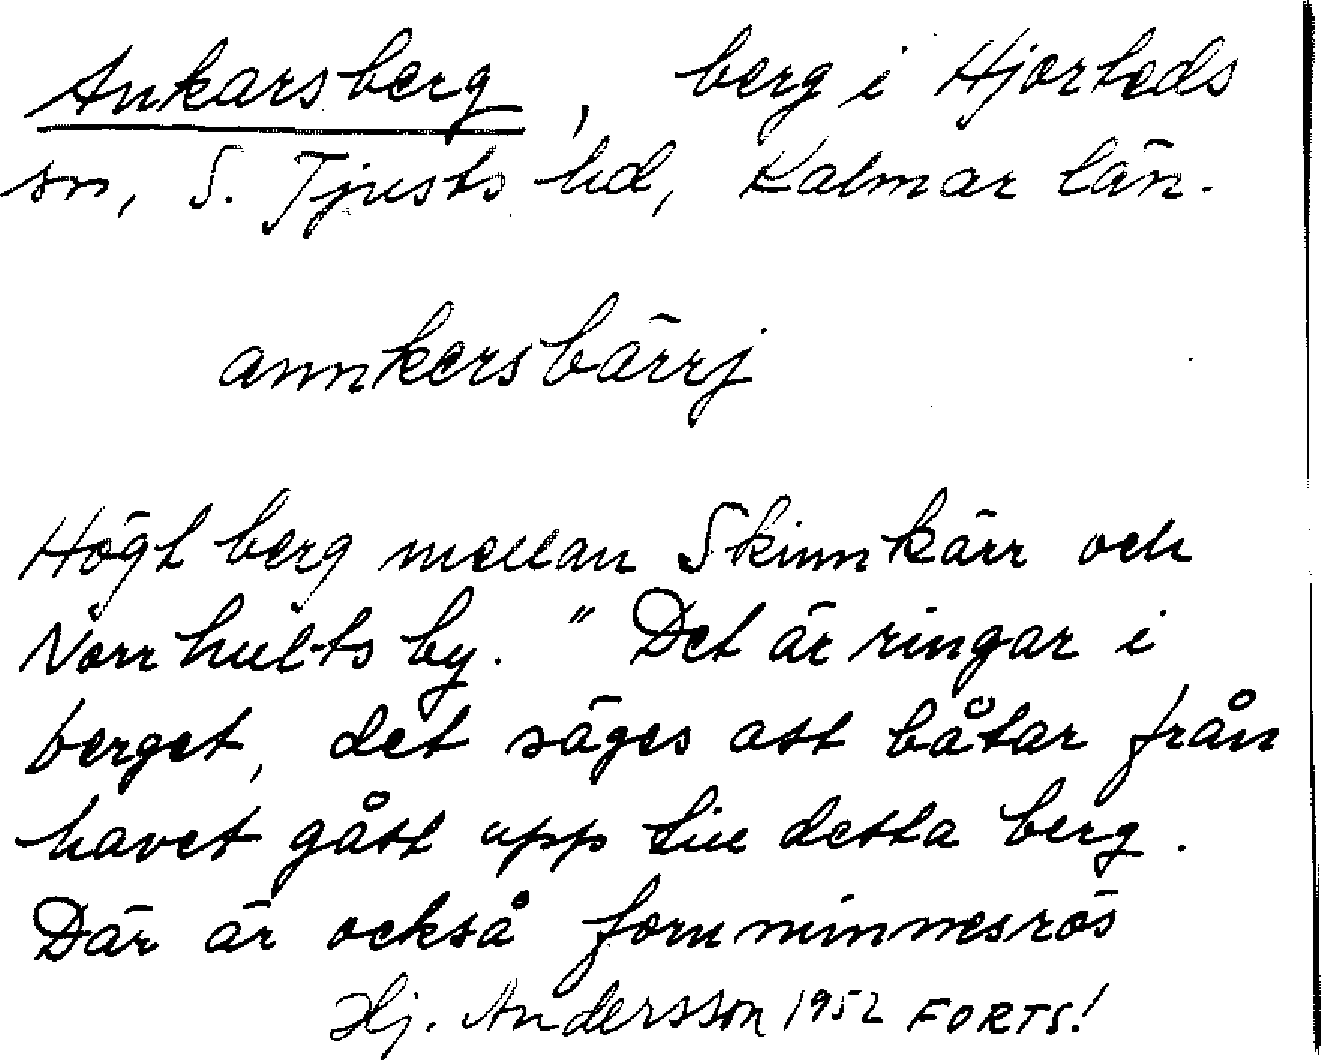 Ankarsberg, berg i Hjorteds
sn, S. Tjusts hd, Kalmar län.
annkersbärrj
Högt berg mellan Skinnkärr och
Norrhults by. "Det är ringar i
berget, det säges att båtar från
havet gått upp till detta berg.
Där är också fornminnesrös
Hj. Andersson 1952 FORTS!